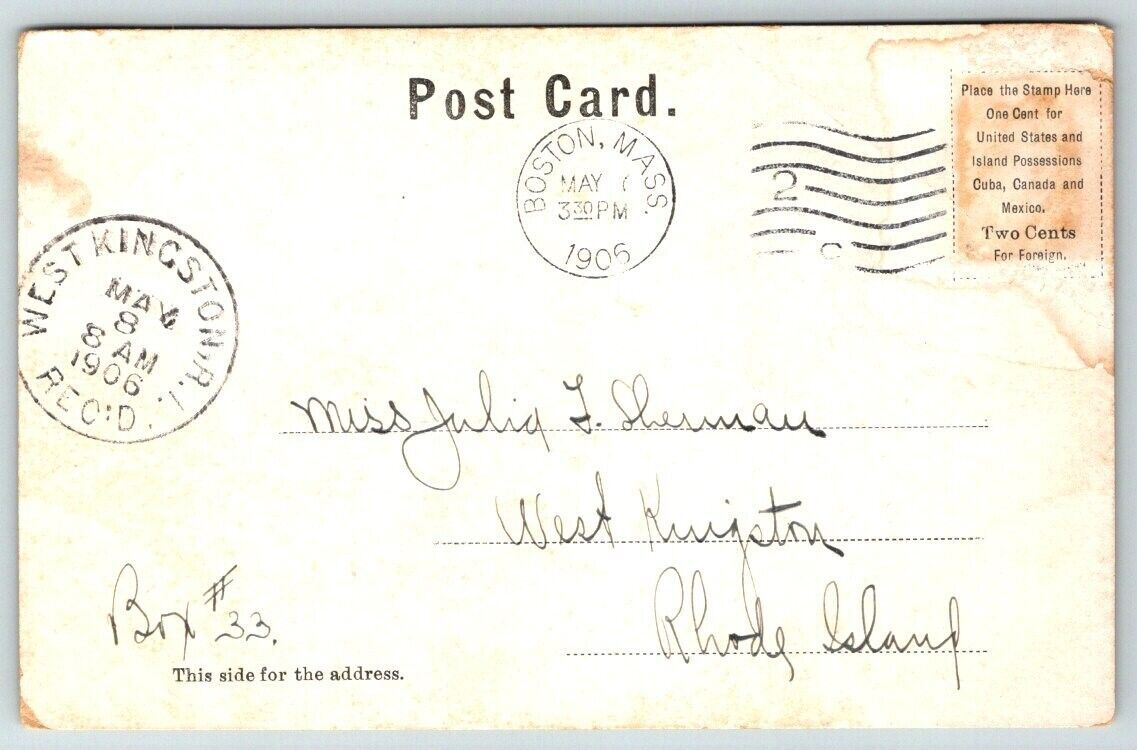 Post Card.
BOSTON, MASS.
MAY
3 30 PM
1906
2
C
Place the Stamp Here
One Cent for
United States and
Island Possessions
Cuba, Canada and
Mexico.
Two Cents
For Foreign.
WEST KINGSTON, R.I.
MAY
8
8 AM
1906
REC'D.
Miss Julia F. Sherman
West Kingston
Rhode Island
Box # 33.
This side for the address.